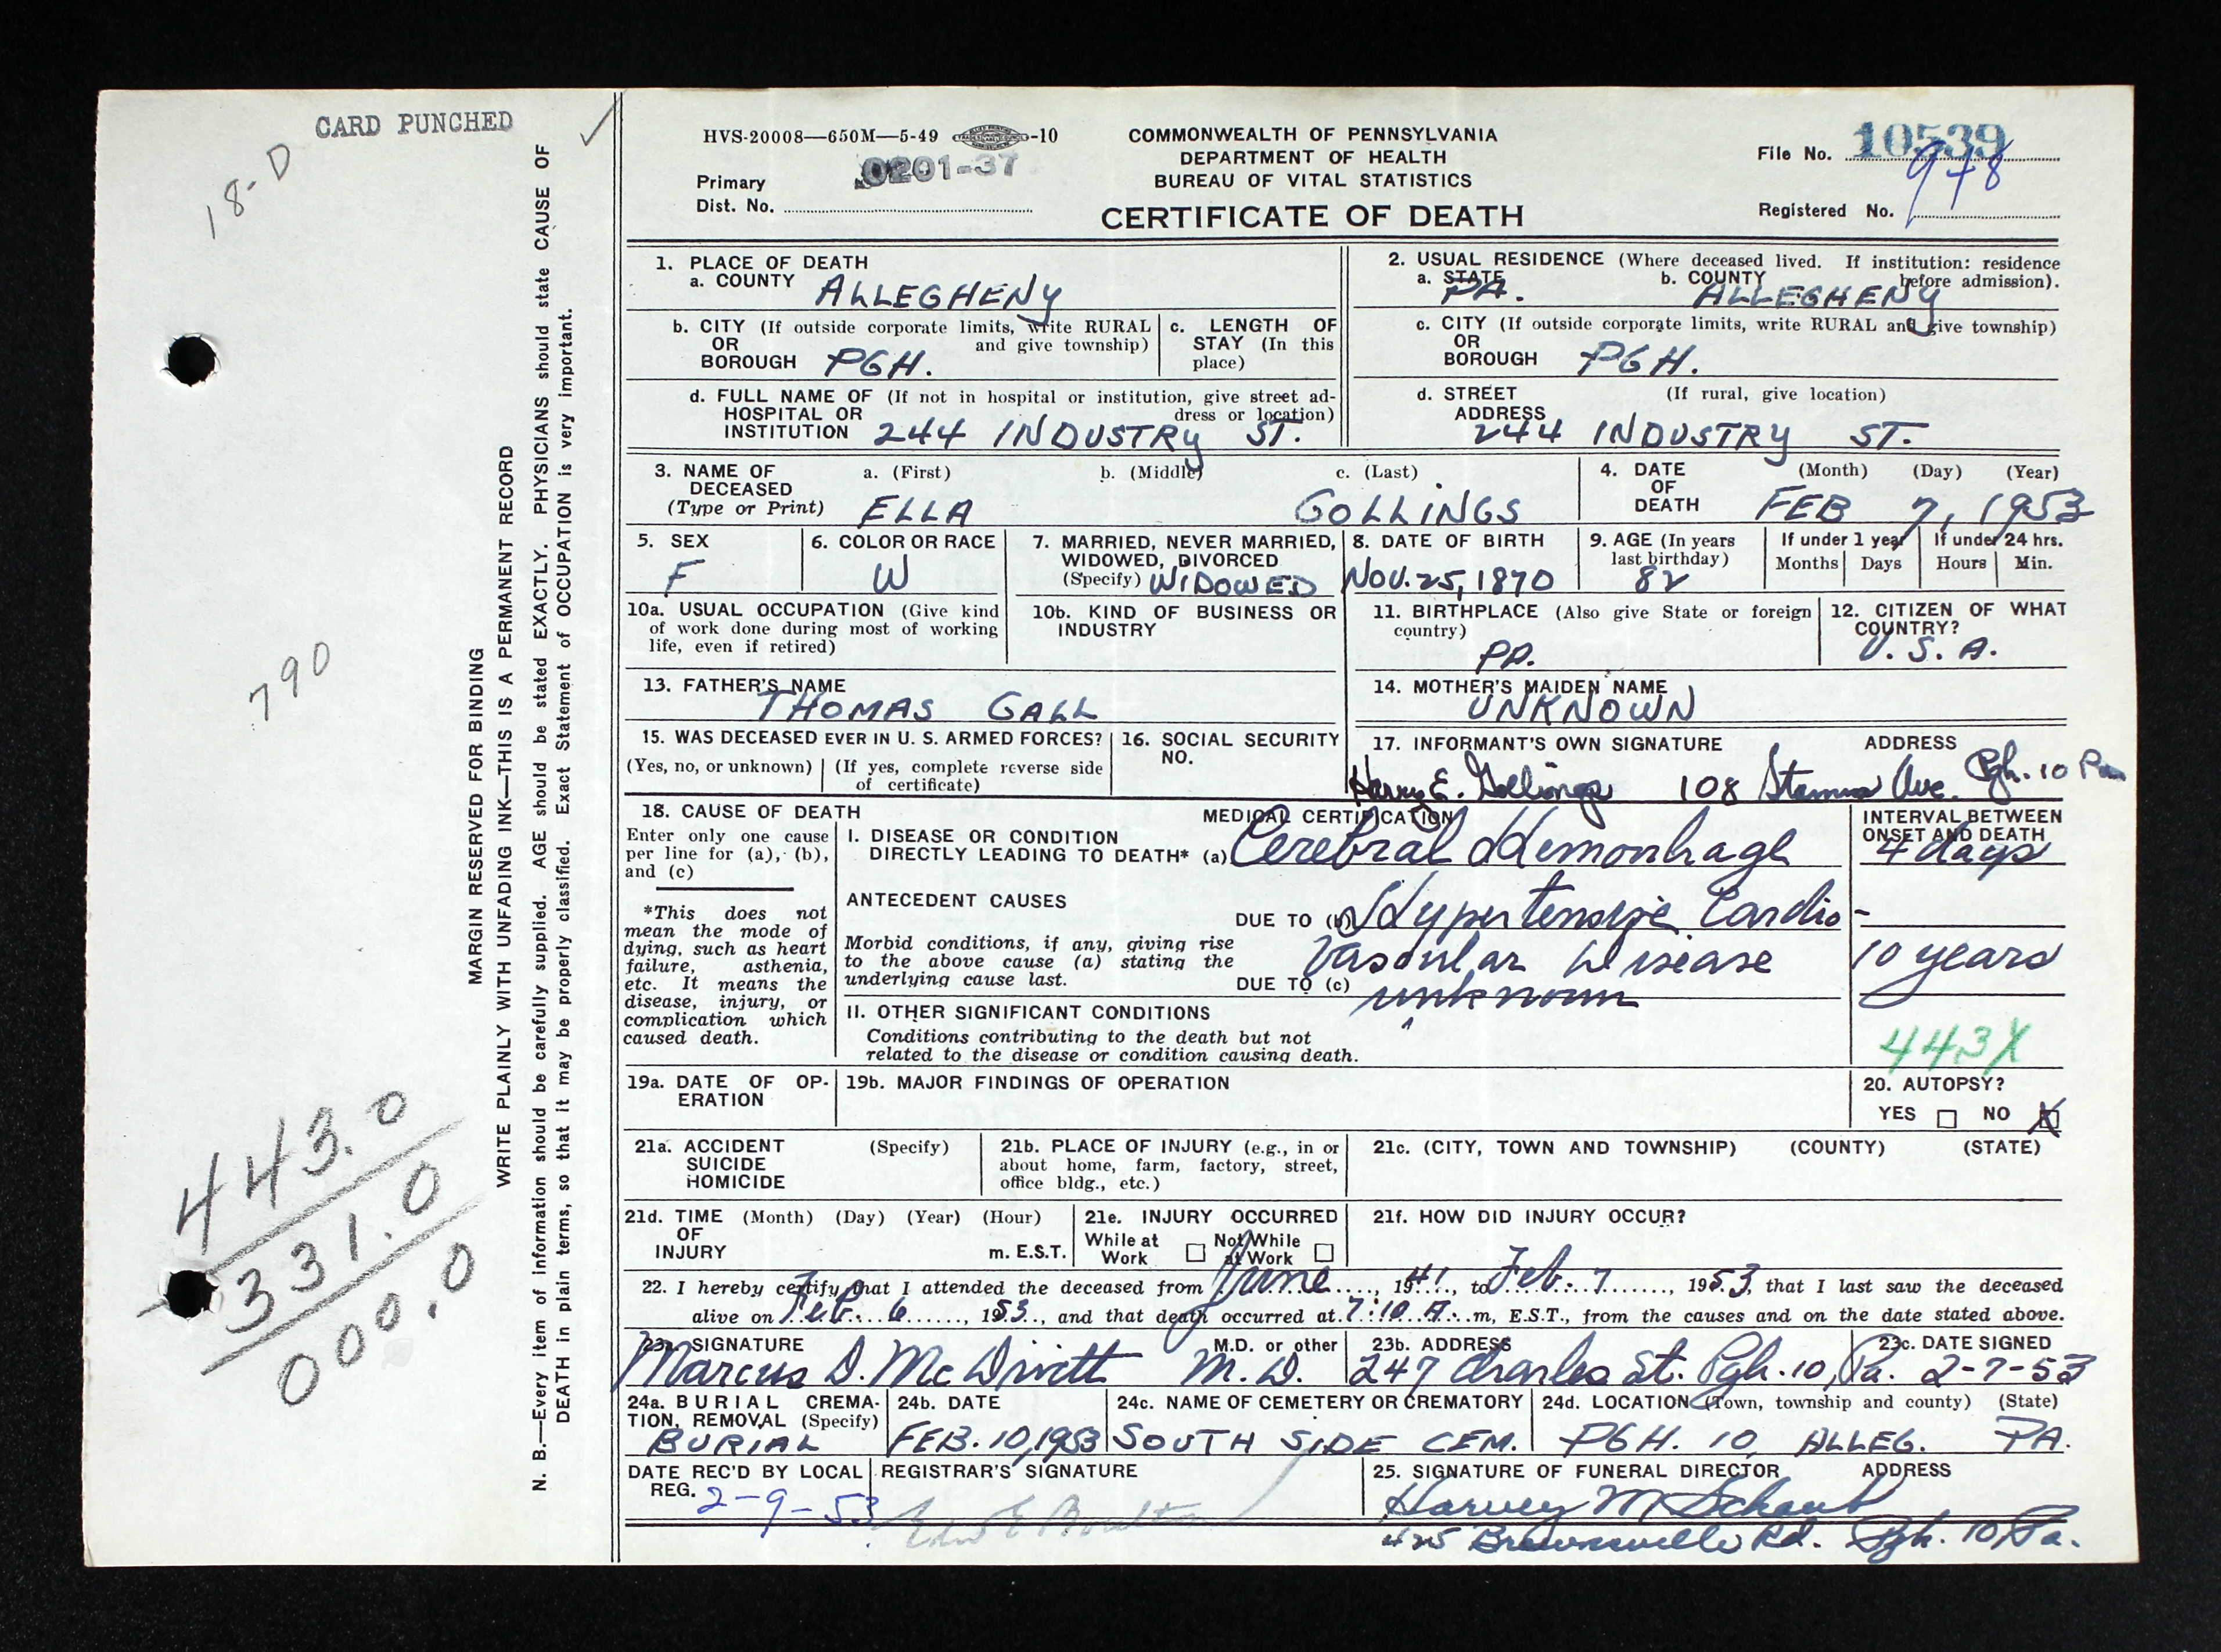 CARD PUNCHED
18-D
790
443.0
331.0
000.0
MARGIN RESERVED FOR BINDING
WRITE PLAINLY WITH UNFADING INK—THIS IS A PERMANENT RECORD
N. B.—Every item of information should be carefully supplied. AGE should be stated EXACTLY. PHYSICIANS should state CAUSE OF
DEATH in plain terms, so that it may be properly classified. Exact Statement of OCCUPATION is very important.
HVS-20008—650M—5-49 -10
COMMONWEALTH OF PENNSYLVANIA
DEPARTMENT OF HEALTH
BUREAU OF VITAL STATISTICS
CERTIFICATE OF DEATH
Primary
Dist. No. 0201-37
File No. 10539
Registered No. 978
1. PLACE OF DEATH
a. COUNTY ALLEGHENY
b. CITY (If outside corporate limits, write RURAL
OR and give township)
BOROUGH PGH.
c. LENGTH OF
STAY (In this
place)
d. FULL NAME OF (If not in hospital or institution, give street ad-
HOSPITAL OR dress or location)
INSTITUTION 244 INDUSTRY ST.
2. USUAL RESIDENCE (Where deceased lived. If institution: residence
before admission).
a. STATE PA. b. COUNTY ALLEGHENY
c. CITY (If outside corporate limits, write RURAL and give township)
OR
BOROUGH PGH.
d. STREET (If rural, give location)
ADDRESS
244 INDUSTRY ST.
3. NAME OF a. (First) b. (Middle) c. (Last)
DECEASED
(Type or Print) ELLA GOLLINGS
4. DATE (Month) (Day) (Year)
OF
DEATH FEB 7, 1953
5. SEX
F
6. COLOR OR RACE
W
7. MARRIED, NEVER MARRIED,
WIDOWED, DIVORCED
(Specify) WIDOWED
8. DATE OF BIRTH
NOV. 25, 1870
9. AGE (In years
last birthday)
82
If under 1 year
Months Days
If under 24 hrs.
Hours Min.
10a. USUAL OCCUPATION (Give kind
of work done during most of working
life, even if retired)
10b. KIND OF BUSINESS OR
INDUSTRY
11. BIRTHPLACE (Also give State or foreign
country)
PA.
12. CITIZEN OF WHAT
COUNTRY?
U.S.A.
13. FATHER'S NAME
THOMAS GALL
14. MOTHER'S MAIDEN NAME
UNKNOWN
15. WAS DECEASED EVER IN U. S. ARMED FORCES?
(Yes, no, or unknown) (If yes, complete reverse side
of certificate)
16. SOCIAL SECURITY
NO.
17. INFORMANT'S OWN SIGNATURE ADDRESS
Harry E. Gollings 108 Ave. Pgh. 10 Pa
18. CAUSE OF DEATH
Enter only one cause
per line for (a), (b),
and (c)
*This does not
mean the mode of
dying, such as heart
failure, asthenia,
etc. It means the
disease, injury, or
complication which
caused death.
MEDICAL CERTIFICATION
I. DISEASE OR CONDITION
DIRECTLY LEADING TO DEATH* (a) Cerebral Hemorrhage
ANTECEDENT CAUSES
DUE TO (b) Hypertensive Cardio-
Morbid conditions, if any, giving rise
to the above cause (a) stating the
underlying cause last.
Vascular Disease
DUE TO (c) unknown
II. OTHER SIGNIFICANT CONDITIONS
Conditions contributing to the death but not
related to the disease or condition causing death.
INTERVAL BETWEEN
ONSET AND DEATH
4 days
10 years
443X
19a. DATE OF OP-
ERATION
19b. MAJOR FINDINGS OF OPERATION
20. AUTOPSY?
YES NO X
21a. ACCIDENT (Specify)
SUICIDE
HOMICIDE
21b. PLACE OF INJURY (e.g., in or
about home, farm, factory, street,
office bldg., etc.)
21c. (CITY, TOWN AND TOWNSHIP) (COUNTY) (STATE)
21d. TIME (Month) (Day) (Year) (Hour)
OF
INJURY m. E.S.T.
21e. INJURY OCCURRED
While at Not While
Work at Work
21f. HOW DID INJURY OCCUR?
22. I hereby certify that I attended the deceased from June, 1941, to Feb. 7, 1953, that I last saw the deceased
alive on Feb. 6, 1953, and that death occurred at 7:10 A.m, E.S.T., from the causes and on the date stated above.
23a. SIGNATURE M.D. or other
Marcus D. McDivitt M.D.
23b. ADDRESS
247 Charles St. Pgh. 10, Pa.
23c. DATE SIGNED
2-7-53
24a. BURIAL CREMA-
TION, REMOVAL (Specify)
BURIAL
24b. DATE
FEB. 10, 1953
24c. NAME OF CEMETERY OR CREMATORY
SOUTH SIDE CEM.
24d. LOCATION (Town, township and county) (State)
PGH. 10, ALLEG. PA.
DATE REC'D BY LOCAL
REG. 2-9-53
REGISTRAR'S SIGNATURE
25. SIGNATURE OF FUNERAL DIRECTOR ADDRESS
Harvey M Schaub
425 Brownsville Rd. Pgh. 10, Pa.